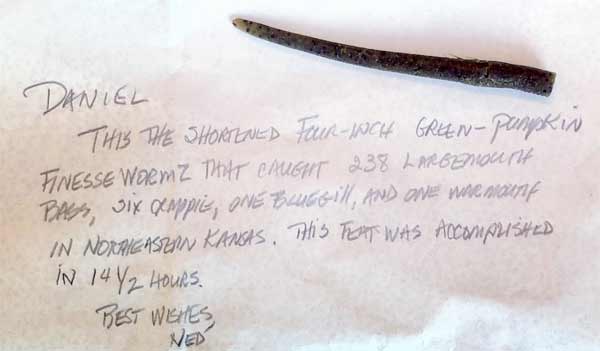 DANIEL
THIS THE SHORTENED FOUR-INCH GREEN-PUMPKIN
FINESSE WORMZ THAT CAUGHT 238 LARGEMOUTH
BASS, SIX CRAPPIE, ONE BLUEGILL, AND ONE WARMOUTH
IN NORTHEASTERN KANSAS. THIS FEAT WAS ACCOMPLISHED
IN 14 1/2 HOURS.
BEST WISHES,
NED